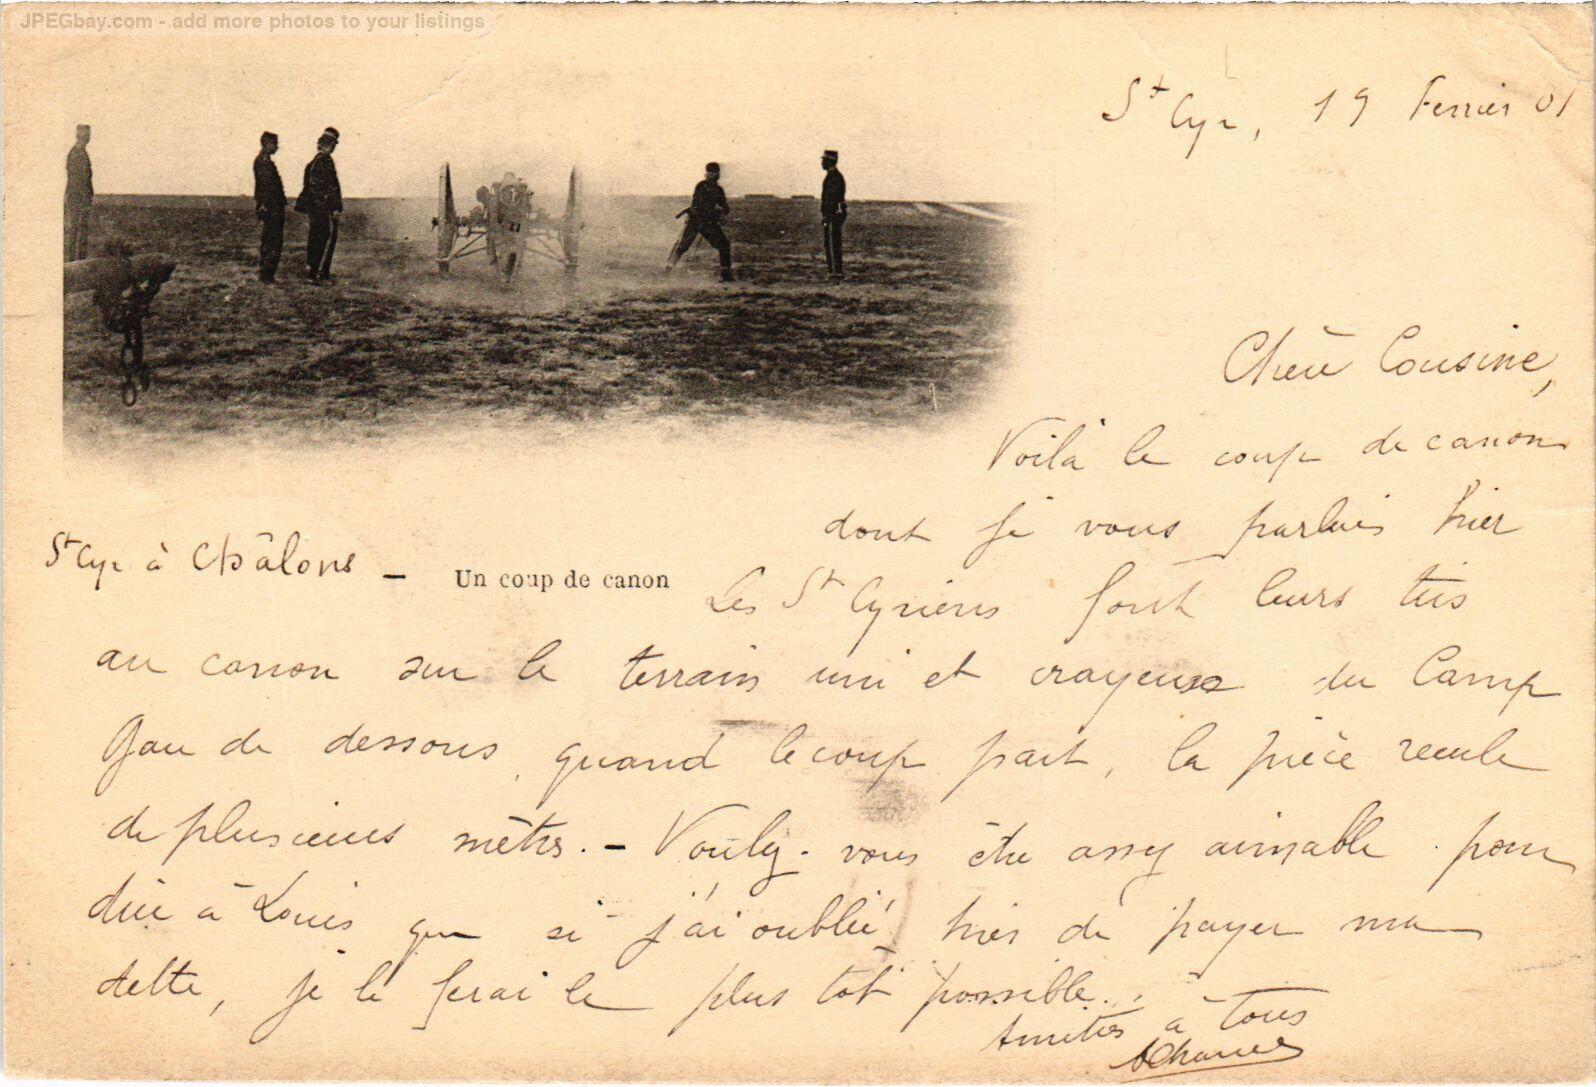 JPEGbay.com - add more photos to your listings
St Cyr, 19 Février 01
Chère Cousine,
Voilà le coup de canon
dont je vous parlais hier
St Cyr à Châlons - Un coup de canon
Les St Cyriens font leurs tirs
au canon sur le terrain uni et crayeux du Camp
de dessous, quand le coup part, la pièce recule
de plusieurs mètres. - Voulez-vous être assez aimable pour
dire à Louis que si j'ai oublié hier de payer ma
dette, je le ferai le plus tôt possible.
Amitiés à tous